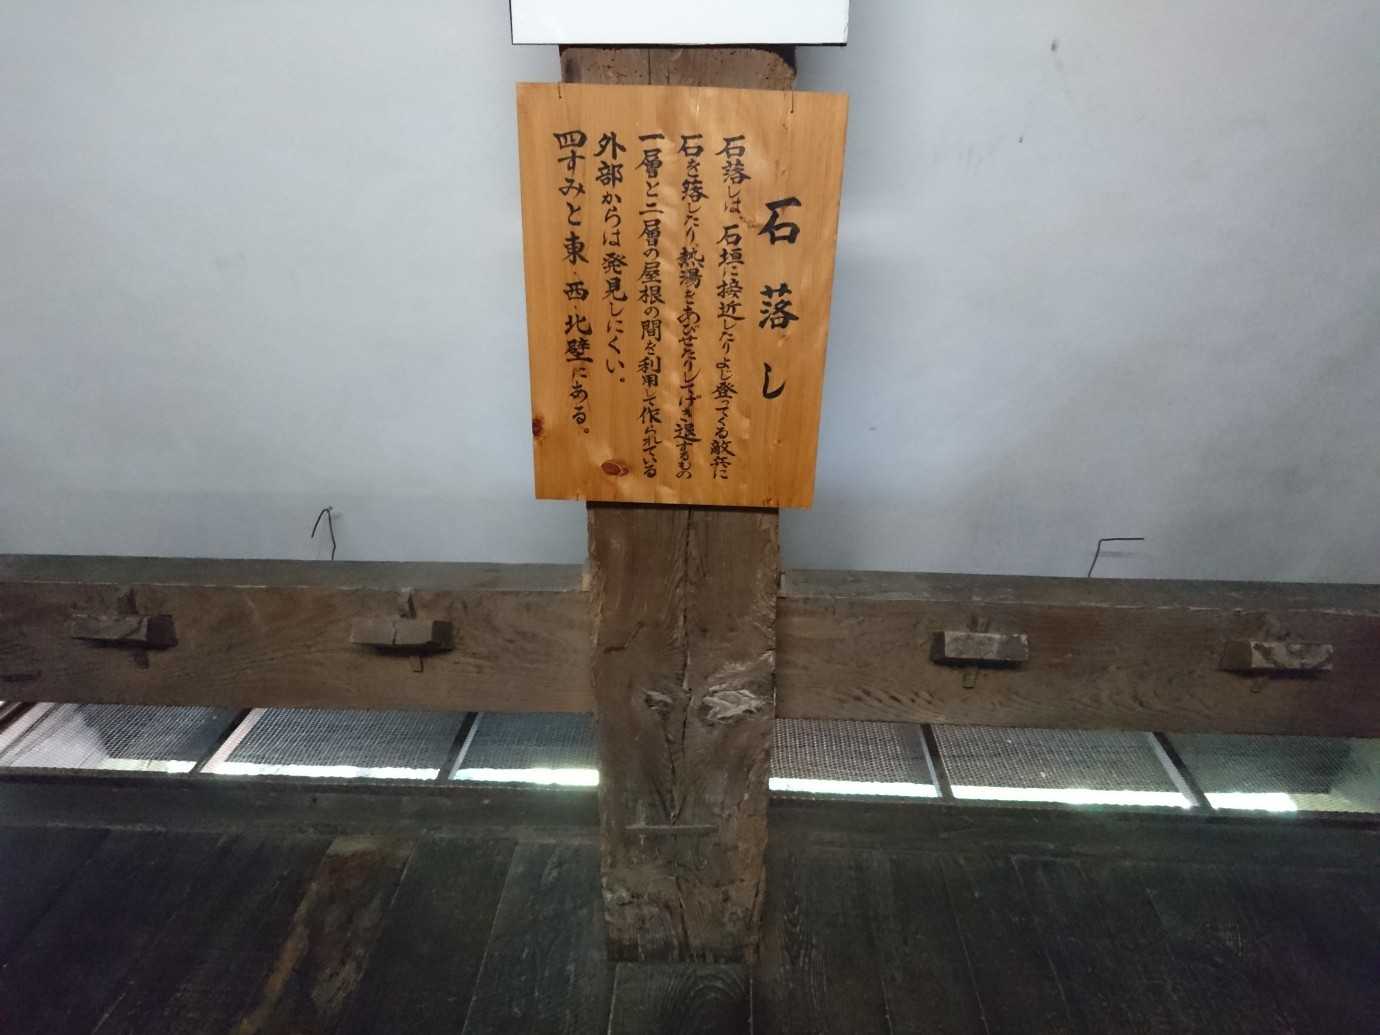 石落し
石落しは、石垣に接近したりよじ登ってくる敵兵に
石を落したり、熱湯をあびせたりしてげき退するもの
一層と二層の屋根の間を利用して作られている
外部からは発見しにくい。
四すみと東・西・北壁にある。